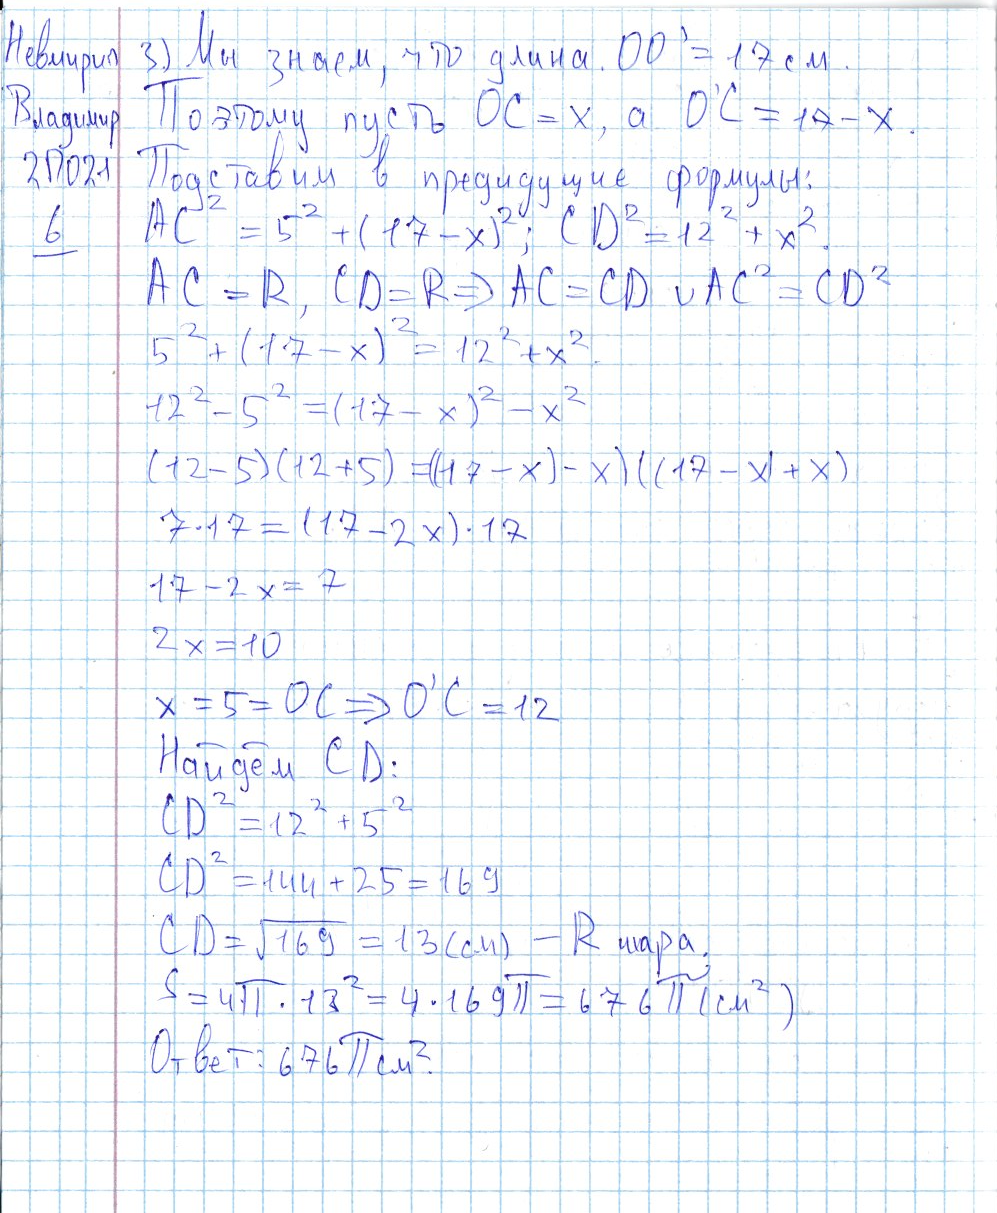 Невмирич
Владимир
2П021
6
3) Мы знаем, что длина OO' = 17 см.
Поэтому пусть OC = x, а O'C = 17 - x.
Подставим в предидущие формулы:
AC² = 5² + (17 - x)²; CD² = 12² + x².
AC = R, CD = R => AC = CD и AC² = CD²
5² + (17 - x)² = 12² + x².
12² - 5² = (17 - x)² - x²
(12 - 5)(12 + 5) = ((17 - x) - x)((17 - x) + x)
7·17 = (17 - 2x)·17
17 - 2x = 7
2x = 10
x = 5 = OC => O'C = 12
Найдём CD:
CD² = 12² + 5²
CD² = 144 + 25 = 169
CD = √169 = 13 (см) - R шара.
S = 4π · 13² = 4 · 169π = 676π (см²)
Ответ: 676π см².